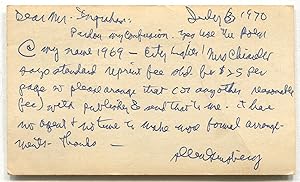 Dear Mr. Ingraham: July 3, 1970
Pardon my confusion. Yes use the Poem
@ my name 1969 — City Lights! Mrs Chiasler
says standard reprint fee is $25 per
page so please arrange that (or any other reasonable
fee) with publisher & send that to me. I have
no agent & no time to make more formal arrange-
ments — Thanks —
Allen Ginsberg